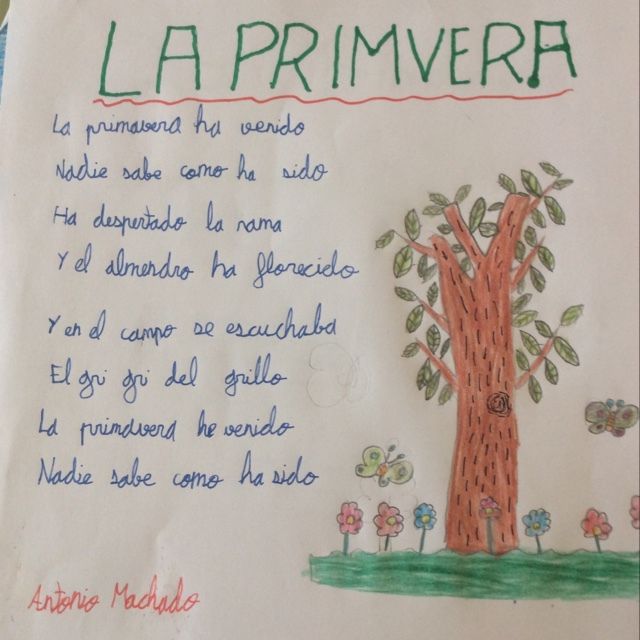 LA PRIMVERA
La primavera ha venido
Nadie sabe como ha sido
Ha despertado la rama
Y el almendro ha florecido
Y en el campo se escuchaba
El gri gri del grillo
La primavera he venido
Nadie sabe como ha sido
Antonio Machado